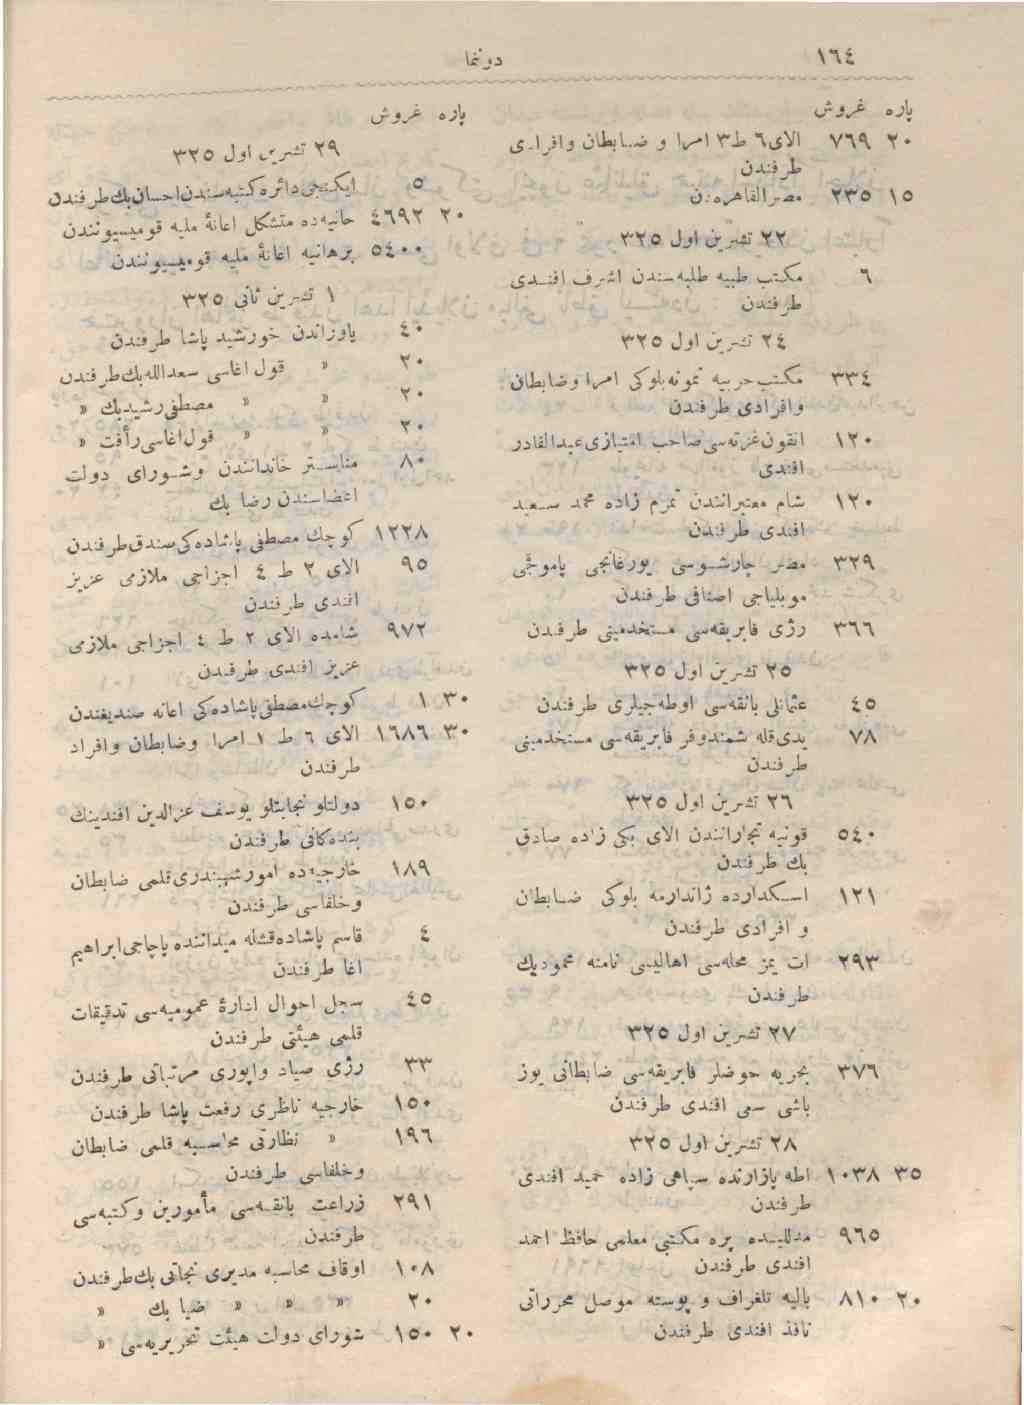 ١٦٤
دوننما
پاره غروش
٢٠ ٧٦٩ الای ٦ ط ٣ امرا و ضابطان وافرادی
طرفندن
١٥ ٢٣٥ مصرالقاهره‌دن
٢٢ تشرین اول ٣٢٥
٦ مكتب طبیه طلبه‌سندن اشرف افندی
طرفندن
٢٤ تشرین اول ٣٢٥
٣٣٤ مكتب حربیه نمونه بلوكی امرا وضابطان
وافرادی طرفندن
١٢٠ انقون غزته‌سی صاحب امتیازی عبدالقادر
افندی
١٢٠ شام معتبرانندن زاده محمد سعید
افندی طرفندن
٣٢٩ مصر چارشوسی یورغانجی پاموقجی
موبلیاجی اصنافی طرفندن
٣٦٦ رژی فابریقه‌سی مستخدمینی طرفندن
٢٥ تشرین اول ٣٢٥
٤٥ عثمانلی بانقه‌سی اوطه‌جیلری طرفندن
٧٨ یدی‌قله شمندوفر فابریقه‌سی مستخدمینی
طرفندن
٢٦ تشرین اول ٣٢٥
٥٤٠ قونیه تجارانندن الای بكی زاده صادق
بك طرفندن
١٢١ اسكدارده ژاندارمه بلوكی ضابطان
و افرادی طرفندن
٢٩٣ ات یمز محله‌سی اهالیسی نامنه محمودبك
طرفندن
٢٧ تشرین اول ٣٢٥
٣٧٦ بحریه حوضلر فابریقه‌سی ضابطانی یوز
باشی سمی افندی طرفندن
٢٨ تشرین اول ٣٢٥
٣٥ ١٠٣٨ اطه پازارنده سپاهی زاده حمید افندی
طرفندن
٩٦٥ مدللیده پره مكتبی معلمی حافظ احمد
افندی طرفندن
٢٠ ٨١٠ بالیه تلغراف و پوسته موصل محرراتی
نافذ افندی طرفندن
پاره غروش
٢٩ تشرین اول ٣٢٥
٥ ایكنجی دائره كتبه‌سندن احسان بك طرفندن
٢٠ ٤٦٩٢ حانیه‌ده متشكل اعانهٔ ملیه قومیسیونندن
٥٤٠٠ برهانیه اعانهٔ ملیه قومیسیونندن
١ تشرین ثانی ٣٢٥
٤٠ یاوراندن خورشید پاشا طرفندن
٢٠ » قول اغاسی سعدالله بك طرفندن
٢٠ » » مصطفی رشیدبك »
٢٠ » » قول اغاسی رأفت »
٨٠ مناستر خاندانندن وشورای دولت
اعضاسندن رضا بك
١٢٢٨ كوچك مصطفی پاشاده‌كی صندق طرفندن
٩٥ الای ٢ ط ٤ اجزاجی ملازمی عزیز
افندی طرفندن
٩٧٢ شامده الای ٢ ط ٤ اجزاجی ملازمی
عزیز افندی طرفندن
٣٠ ١ كوچك مصطفی پاشاده‌كی اعانه صندیغندن
٣٠ ١٦٨٦ الای ٦ ط ١ امرا وضابطان وافراد
طرفندن
١٥٠ دولتلو نجابتلو یوسف عزالدین افندینك
بنده‌كانی طرفندن
١٨٩ خارجیه‌ده امورشهبندری قلمی ضابطان
وخلفاسی طرفندن
٤ قاسم پاشاده قشله میداننده پاچاجی ابراهیم
اغا طرفندن
٤٥ سجل احوال ادارهٔ عمومیه‌سی تدقیقات
قلمی هیئتی طرفندن
٣٣ رژی صیاد واپوری مرتباتی طرفندن
١٥٠ خارجیه ناظری رفعت پاشا طرفندن
١٩٦ » نظارتی محاسبه قلمی ضابطان
وخلفاسی طرفندن
٢٩١ زراعت بانقه‌سی مأمورین وكتبه‌سی
طرفندن
١٠٨ اوقاف محاسبه مدیری نجاتی بك طرفندن
٢٠ » » » ضیا بك »
٢٠ ١٥٠ شورای دولت هیئت تحریریه‌سی »